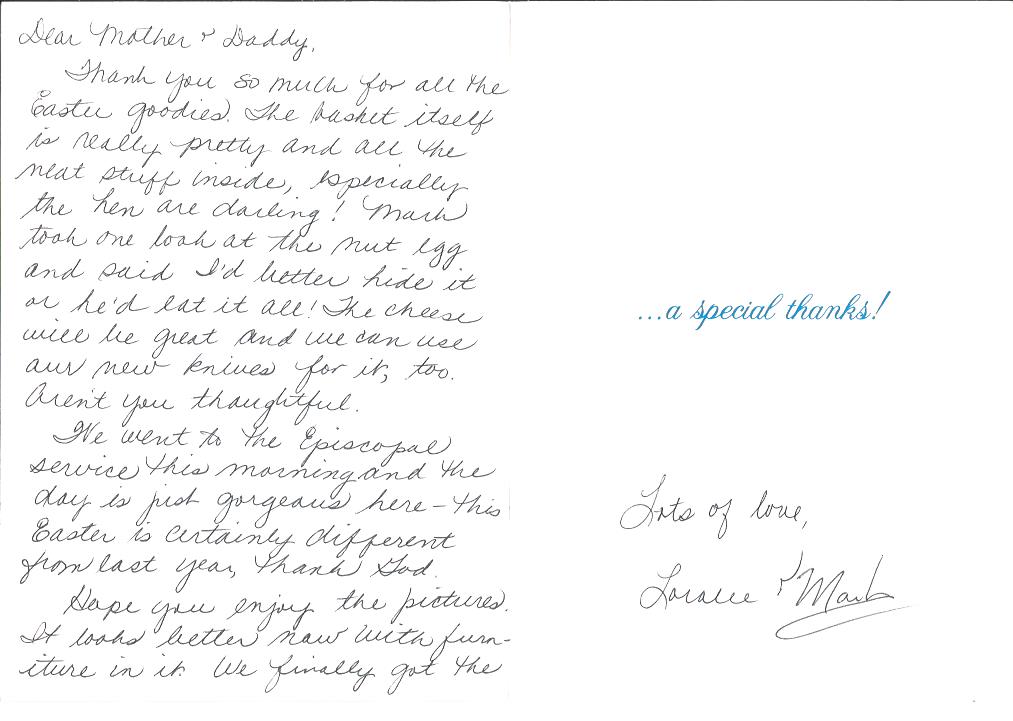 Dear Mother & Daddy,
Thank you so much for all the
Easter goodies. The basket itself
is really pretty and all the
neat stuff inside, especially
the hen are darling! Mark
took one look at the nut egg
and said I'd better hide it
or he'd eat it all! The cheese
will be great and we can use
our new knives for it, too.
Aren't you thoughtful.
We went to the Episcopal
service this morning and the
day is just gorgeous here - this
Easter is certainly different
from last year, thank God.
Hope you enjoy the pictures.
It looks better now with furn-
iture in it. We finally got the
...a special thanks!
Lots of love,
Loralee & Mark